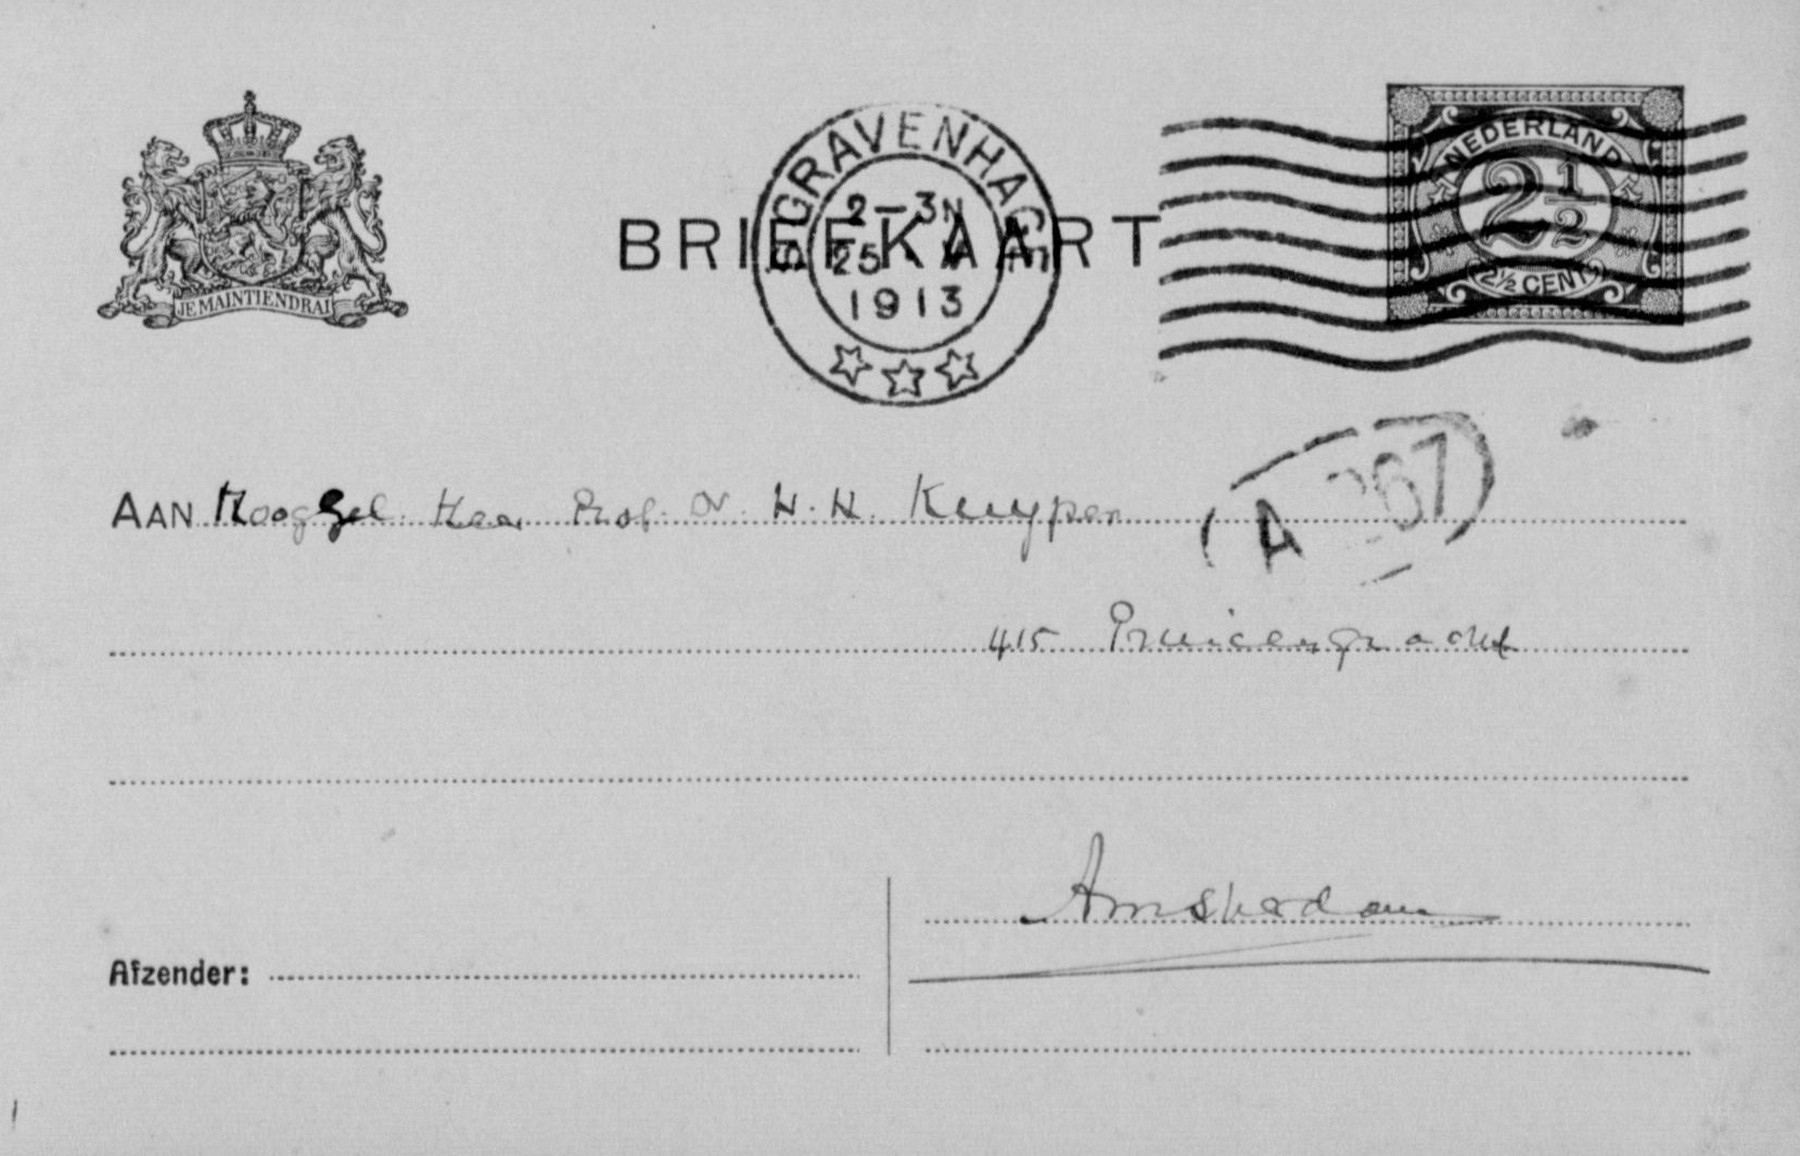 JE MAINTIENDRAI
BRIEFKAART
'SGRAVENHAGE
2-3N
25 V
1913
NEDERLAND
2 1/2
2½ CENT
AAN HoogGel. Heer Prof. Dr. H. H. Kuyper
A 267
415 Prinsengracht
Amsterdam
Afzender: